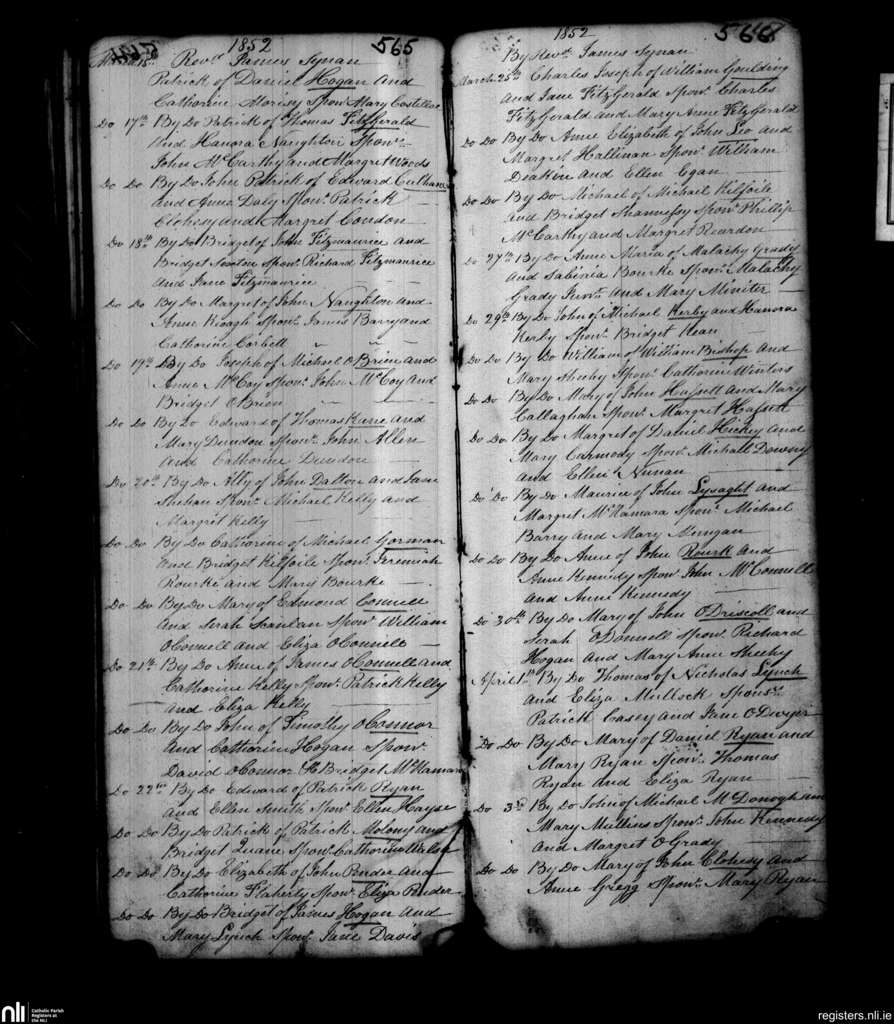 1852 565
March 15th Revd. James Synan
Patrick of Daniel Hogan and
Catharine Morisy Sponr. Mary Costelloe
Do 17th By Do Patrick of Thomas FitzGerald
and Hanora Naughton Sponrs.
John McCarthy and Margret Woods
Do Do By Do John Patrick of Edward Culhane
and Anne Daly Sponr. Patrick
Clohesy and Margret Condon
Do 18th By Do Bridget of John Fitzmaurice and
Bridget Sponr. Richard Fitzmaurice
and Jane Fitzmaurice
Do Do By Do Margret of John Naughton and
Anne Keogh Sponr. James Barry and
Catharine Corbett
Do 19th By Do Joseph of Michael O Brien and
Anne McCoy Sponr. John McCoy and
Bridget OBrien
Do Do By Do Edward of Thomas Kane and
Mary Dundon Sponr. John Allen
and Catharine Dundon
Do 20th By Do Ally of John Dalton and Jane
Sheehan Sponr. Michael Kelly and
Margret Kelly
Do Do By Do Catharine of Michael Gorman
and Bridget Kilfoile Sponr. Jeremiah
Rourke and Mary Bourke
Do Do By Do Mary of Edmond Connell
and Serah Scanlan Sponr. William
OConnell and Eliza OConnell
Do 21th By Do Anne of James OConnell and
Catharine Kelly Sponr. Patrick Kelly
and Eliza Kelly
Do Do By Do John of Timothy OConnor
and Catharine Hogan Sponr.
David OConnor & Bridget McNamara
Do 22nd By Do Edward of Patrick Ryan
and Ellen Smith Sponr. Ellen Hayse
Do Do By Do Patrick of Patrick Molony and
Bridget Quane Sponr. Catharine Walsh
Do Do By Do Elizabeth of John Render and
Catharine Flaherty Sponr. Eliza Render
Do Do By Do Bridget of James Hogan and
Mary Lynch Sponr. Jane Davis
1852 566
By Revd. James Synan
March 25th Charles Joseph of William Goulding
and Jane FitzGerald Sponr. Charles
FitzGerald and Mary Anne FitzGerald
Do Do By Do Anne Elizabeth of John Leo and
Margret Hallinan Sponr. William
Deakin and Ellen Egan
Do Do By Do Michael of Michael Kilfoile
and Bridget Shannessy Sponr. Phillip
McCarthy and Margret Reardon
Do 27th By Do Anne Maria of Malachy Grady
and Sabina Bourke Sponr. Malachy
Grady Junr. and Mary Miniter
Do 29th By Do John of Michael Kerby and Hanora
Kerby Sponr. Bridget Kean
Do Do By Do William of William Bishop and
Mary Sheehy Sponr. Catharine Winters
Do Do By Do Mary of John Hassett and Mary
Callaghan Sponr. Margret Hassett
Do Do By Do Margret of Daniel Hickey and
Mary Carmody Sponr. Michall Downy
and Ellen Nunan
Do Do By Do Maurice of John Lysaght and
Margret McNamara Sponr. Michael
Barry and Mary
Do Do By Do Anne of John Rourk and
Anne Kennedy Sponr. John McConnell
and Anne Kennedy
Do 30th By Do Mary of John ODriscoll and
Serah ODonnell Sponr. Richard
Hogan and Mary Anne Sheehy
April 1th By Do Thomas of Nicholas Lynch
and Eliza Mullock Sponrs.
Patrick Casey and Jane ODwyer
Do Do By Do Mary of Daniel Ryan and
Mary Ryan Sponr. Thomas
Ryan and Eliza Ryan
Do 3rd By Do John of Michael McDonogh and
Mary Mullins Sponr. John Kennedy
and Margret OGrady
Do Do By Do Mary of John Clohesy and
Anne Gregg Sponr. Mary Ryan
nli
Catholic Parish
Registers at
the NLI
registers.nli.ie